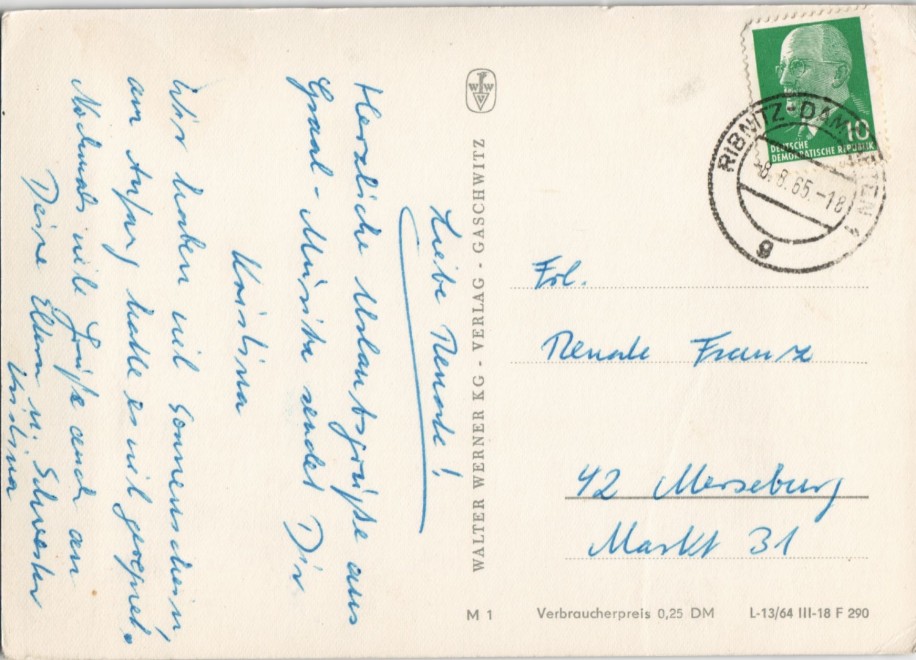 Liebe Renate!
Herzliche Urlaubsgrüße aus
Graal-Müritz sendet Dir
Kristina
Wir haben viel Sonnenschein,
am Anfang hatte es viel geregnet.
Nochmals viele Grüße auch an
Deine Eltern u. Schwester
Kristina
WALTER WERNER KG - VERLAG - GASCHWITZ
10
DEUTSCHE
DEMOKRATISCHE REPUBLIK
RIBNITZ-DAMGARTEN 1
-8.8.65.-18
g
Frl.
Renate Franz
42 Merseburg
Markt 31
M 1
Verbraucherpreis 0,25 DM
L-13/64 III-18 F 290